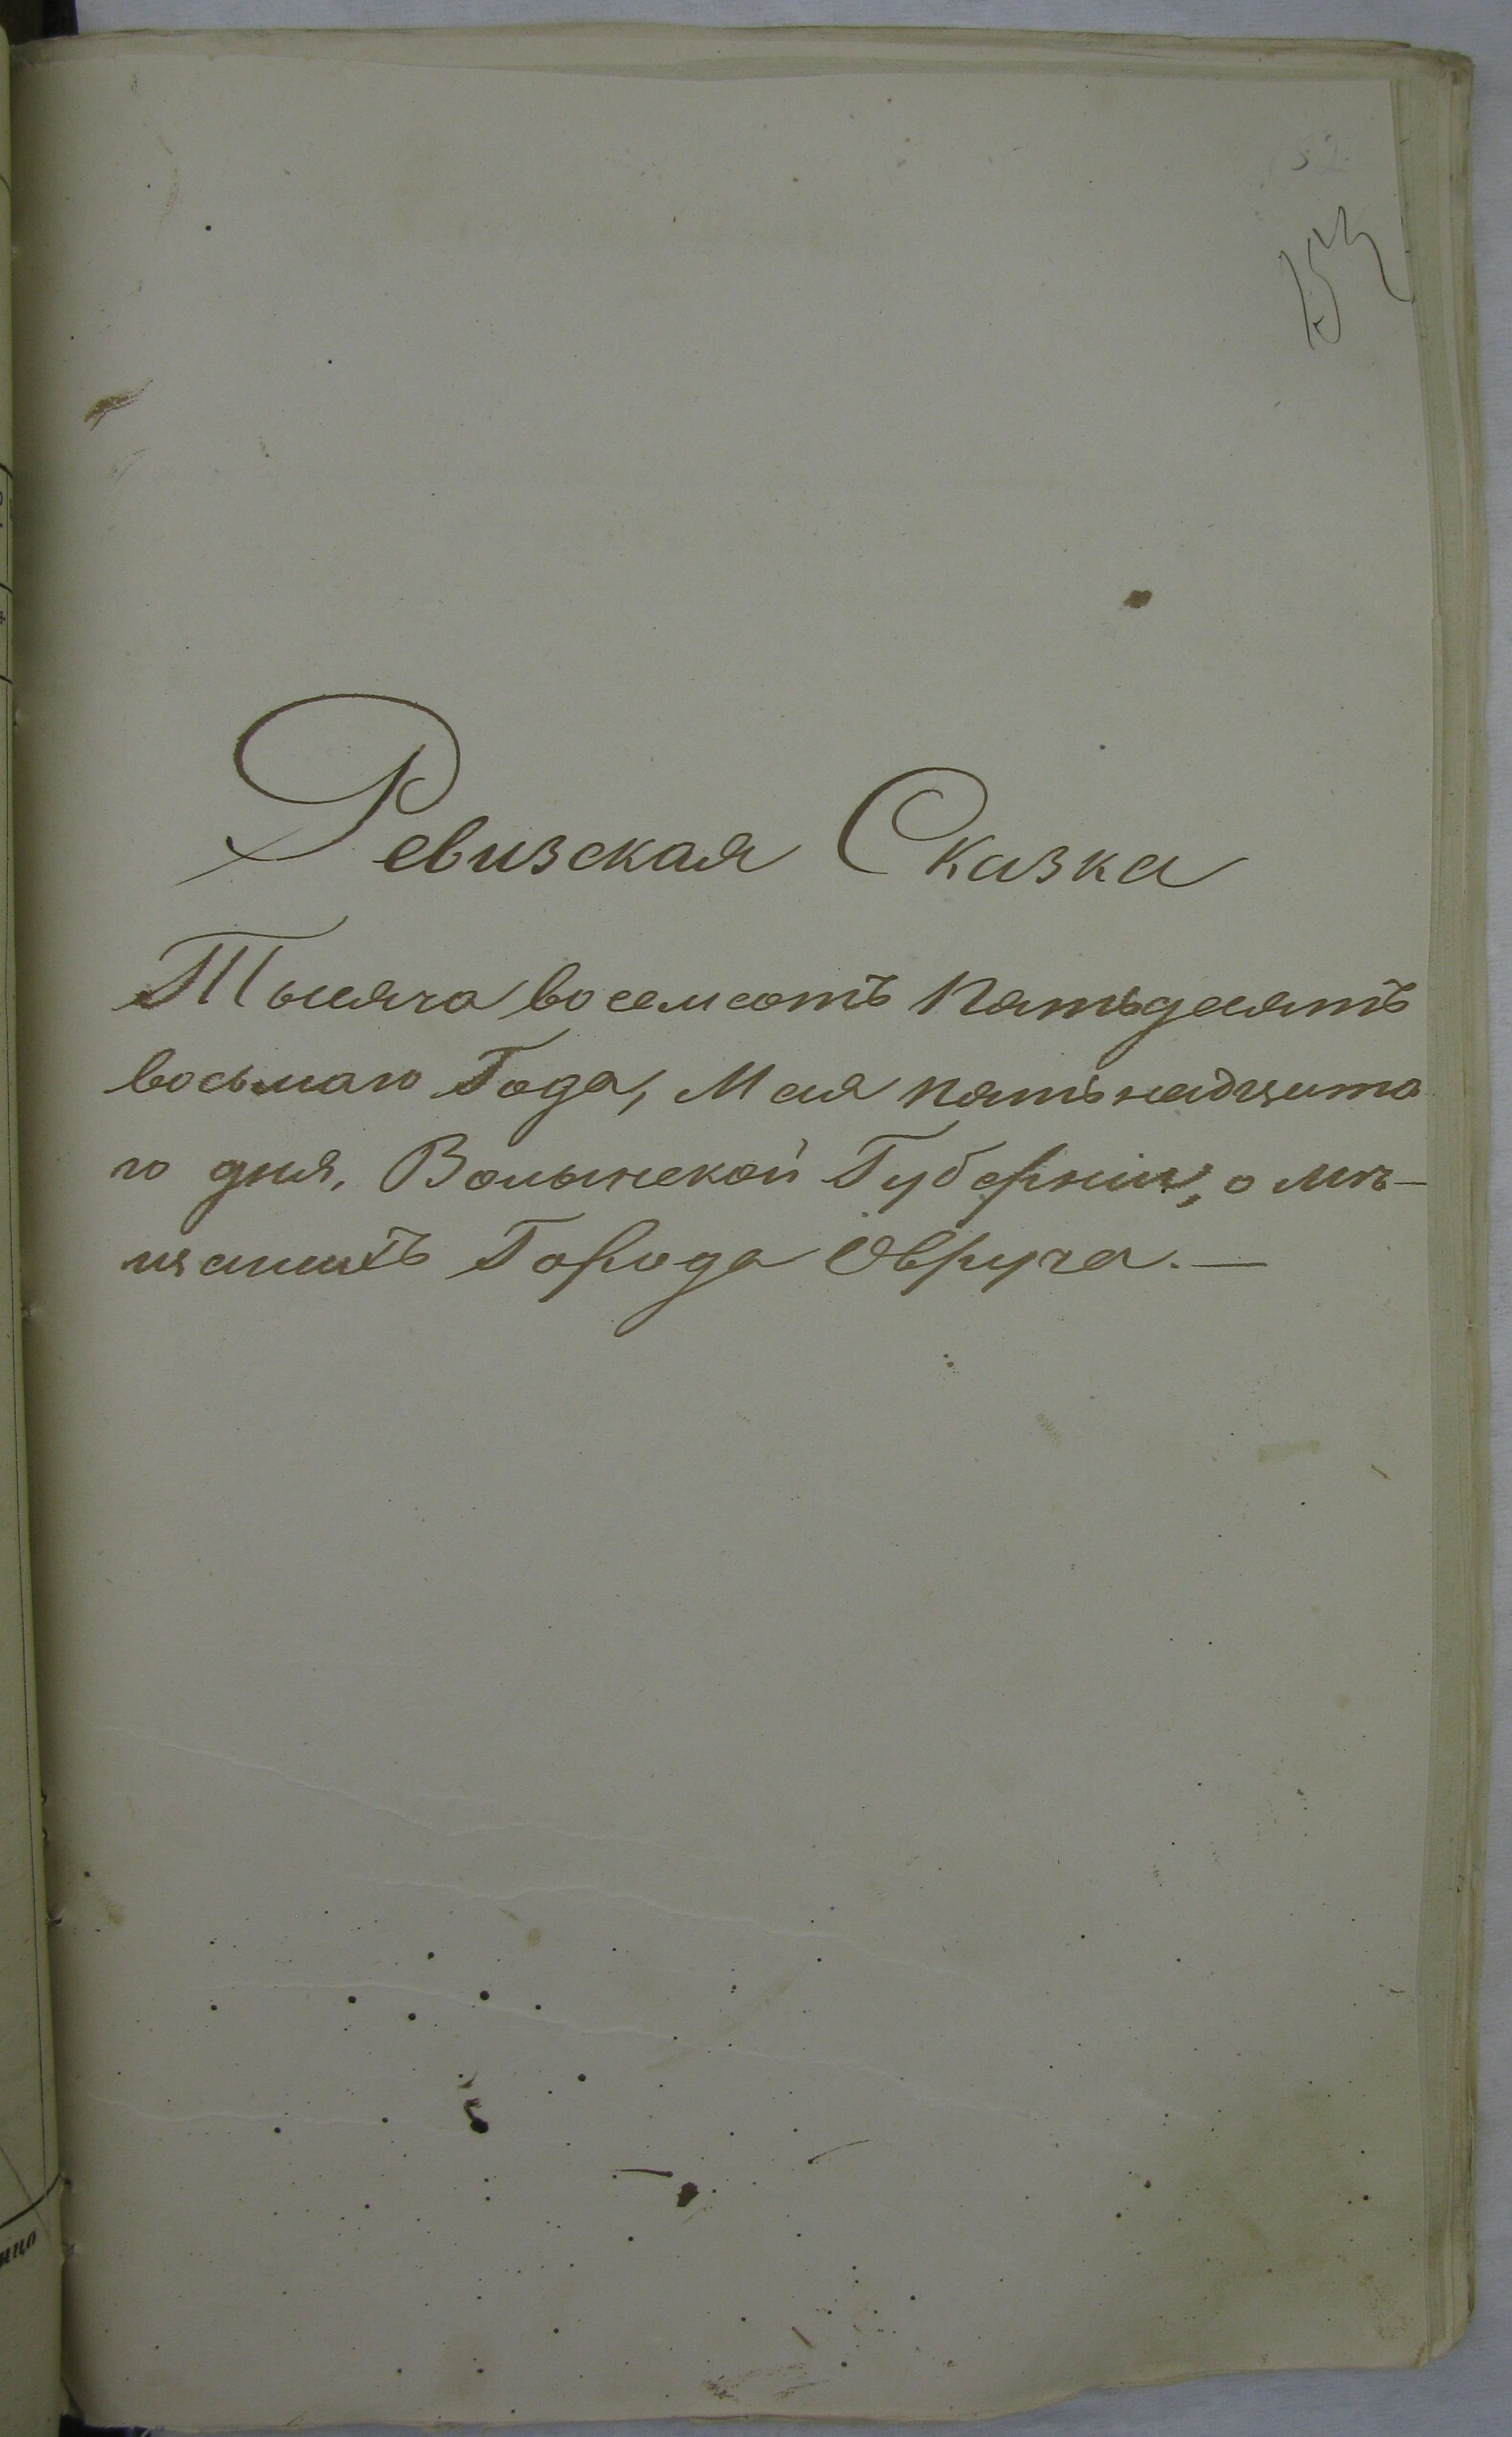 153
Ревизская Сказка
Тысяча восемсотъ Пятьдесятъ
восьмаго Года, Мая пятьнадцата
го дня, Волынской Губерніи, о мѣ-
щанахъ Города Овруча. —